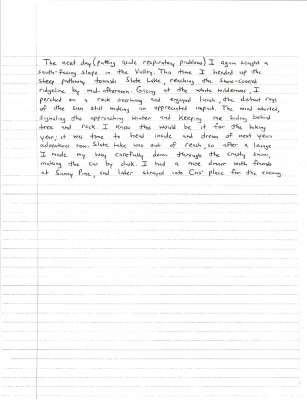 The next day (putting aside respiratory problems) I again sought a
south-facing slope in the Valley. This time I headed up the
steep pathway towards Slate Lake, reaching the snow-covered
ridgeline by mid-afternoon. Gazing at the white wilderness, I
perched on a rock overhang and enjoyed lunch, the distant rays
of the sun still making an appreciated impact. The wind whirled,
signaling the approaching winter and keeping me hiding behind
tree and rock. I knew this would be it for the hiking
year; it was time to head inside and dream of next years
adventures now. Slate Lake was out of reach, so after a lounge
I made my way carefully down through the crusty snow,
making the car by dusk. I had a nice dinner with friends
at Sunny Pine, and later strayed into Cris' place for the evening.